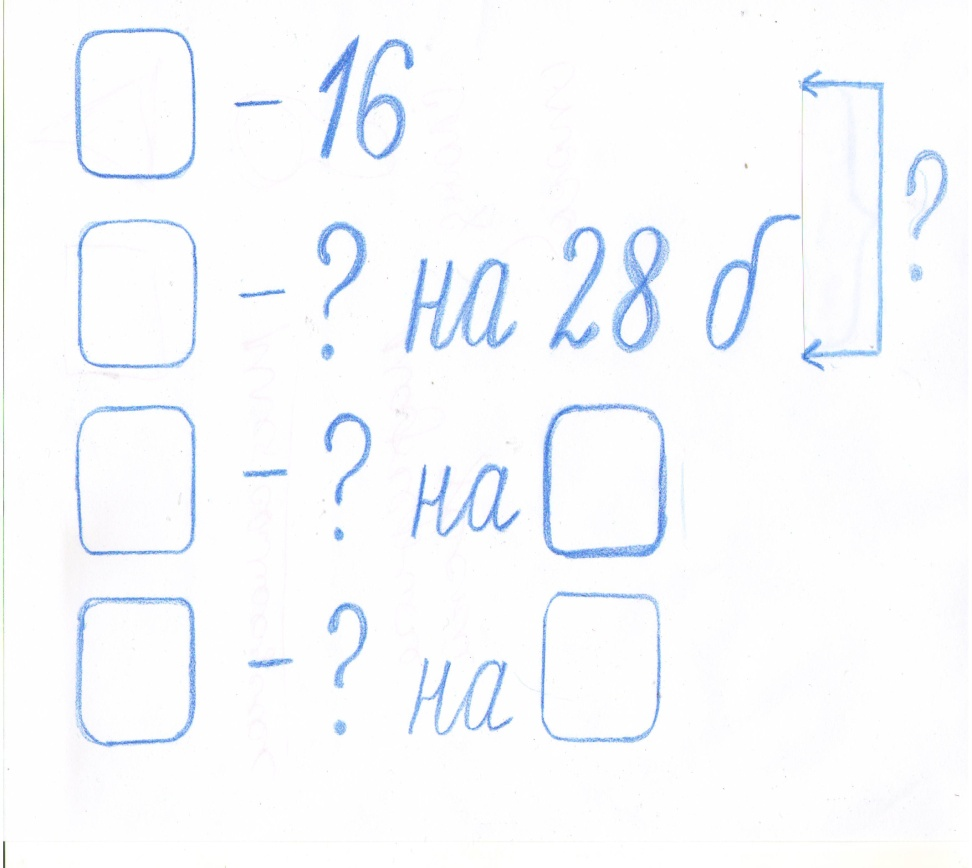 – 16
– ? на 28 б
?
– ? на
– ? на